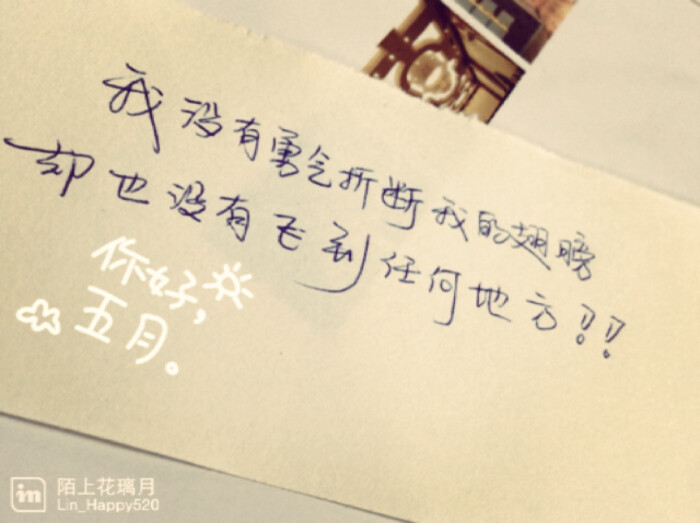 我没有勇气折断我的翅膀
却也没有飞到任何地方?!
你好,
五月。
in 陌上花璃月
Lin_Happy520